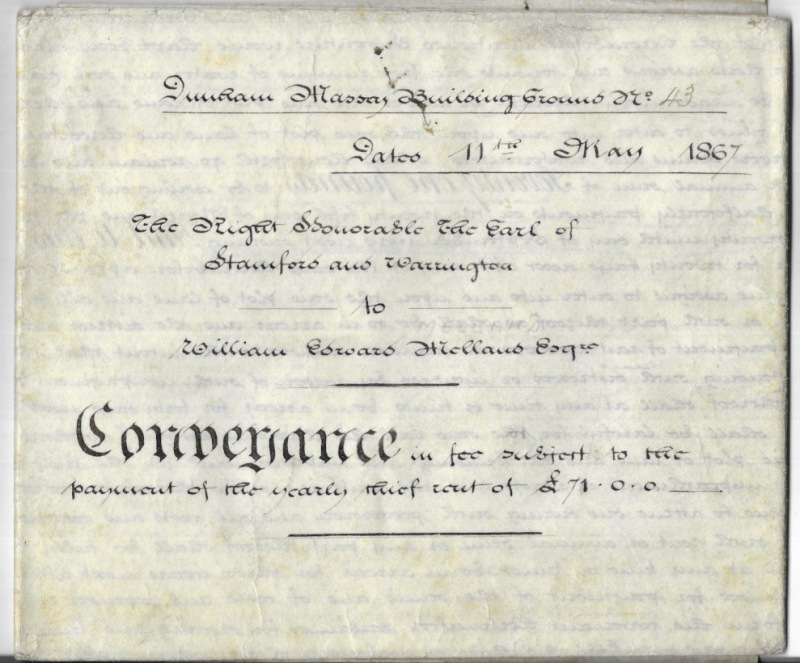 Dunham Massey Building Ground No. 43
Dated 11th May 1867
The Right Honorable The Earl of
Stamford and Warrington
to
William Edward Melland Esqre
Conveyance in fee subject to the
payment of the yearly chief rent of £71.0.0